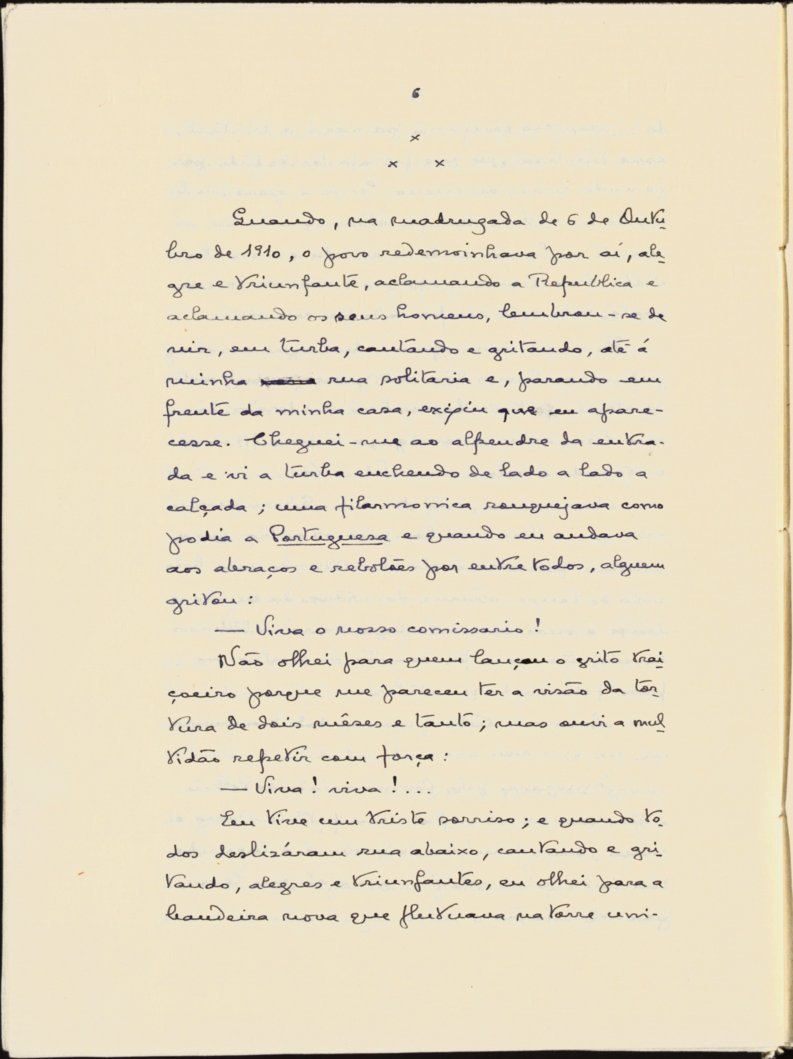 6
x
x x
Quando, na madrugada de 6 de Outu-
bro de 1910, o povo redemoinhava por aí, ale-
gre e triunfante, aclamando a Republica e
aclamando os seus homens, lembrou-se de
vir, em turba, cantando e gritando, até á
minha rua solitaria e, parando em
frente da minha casa, exigiu que eu apare-
cesse. Cheguei-me ao alpendre da entra-
da e vi a turba enchendo de lado a lado a
calçada; uma filarmonica rouquejava como
podia a Portuguesa e quando eu andava
aos abraços e rebolões por entre todos, alguem
gritou:
— Viva o nosso comissario!
Não olhei para quem lançou o grito trai-
çoeiro porque me pareceu ter a visão da tor-
tura de dois mêses e tanto; mas ouvi a mul-
tidão repetir com força:
— Viva! viva!...
Eu tive um triste sorriso; e quando to-
dos deslizáram rua abaixo, cantando e gri-
tando, alegres e triunfantes, eu olhei para a
bandeira nova que flutuava na torre uni-